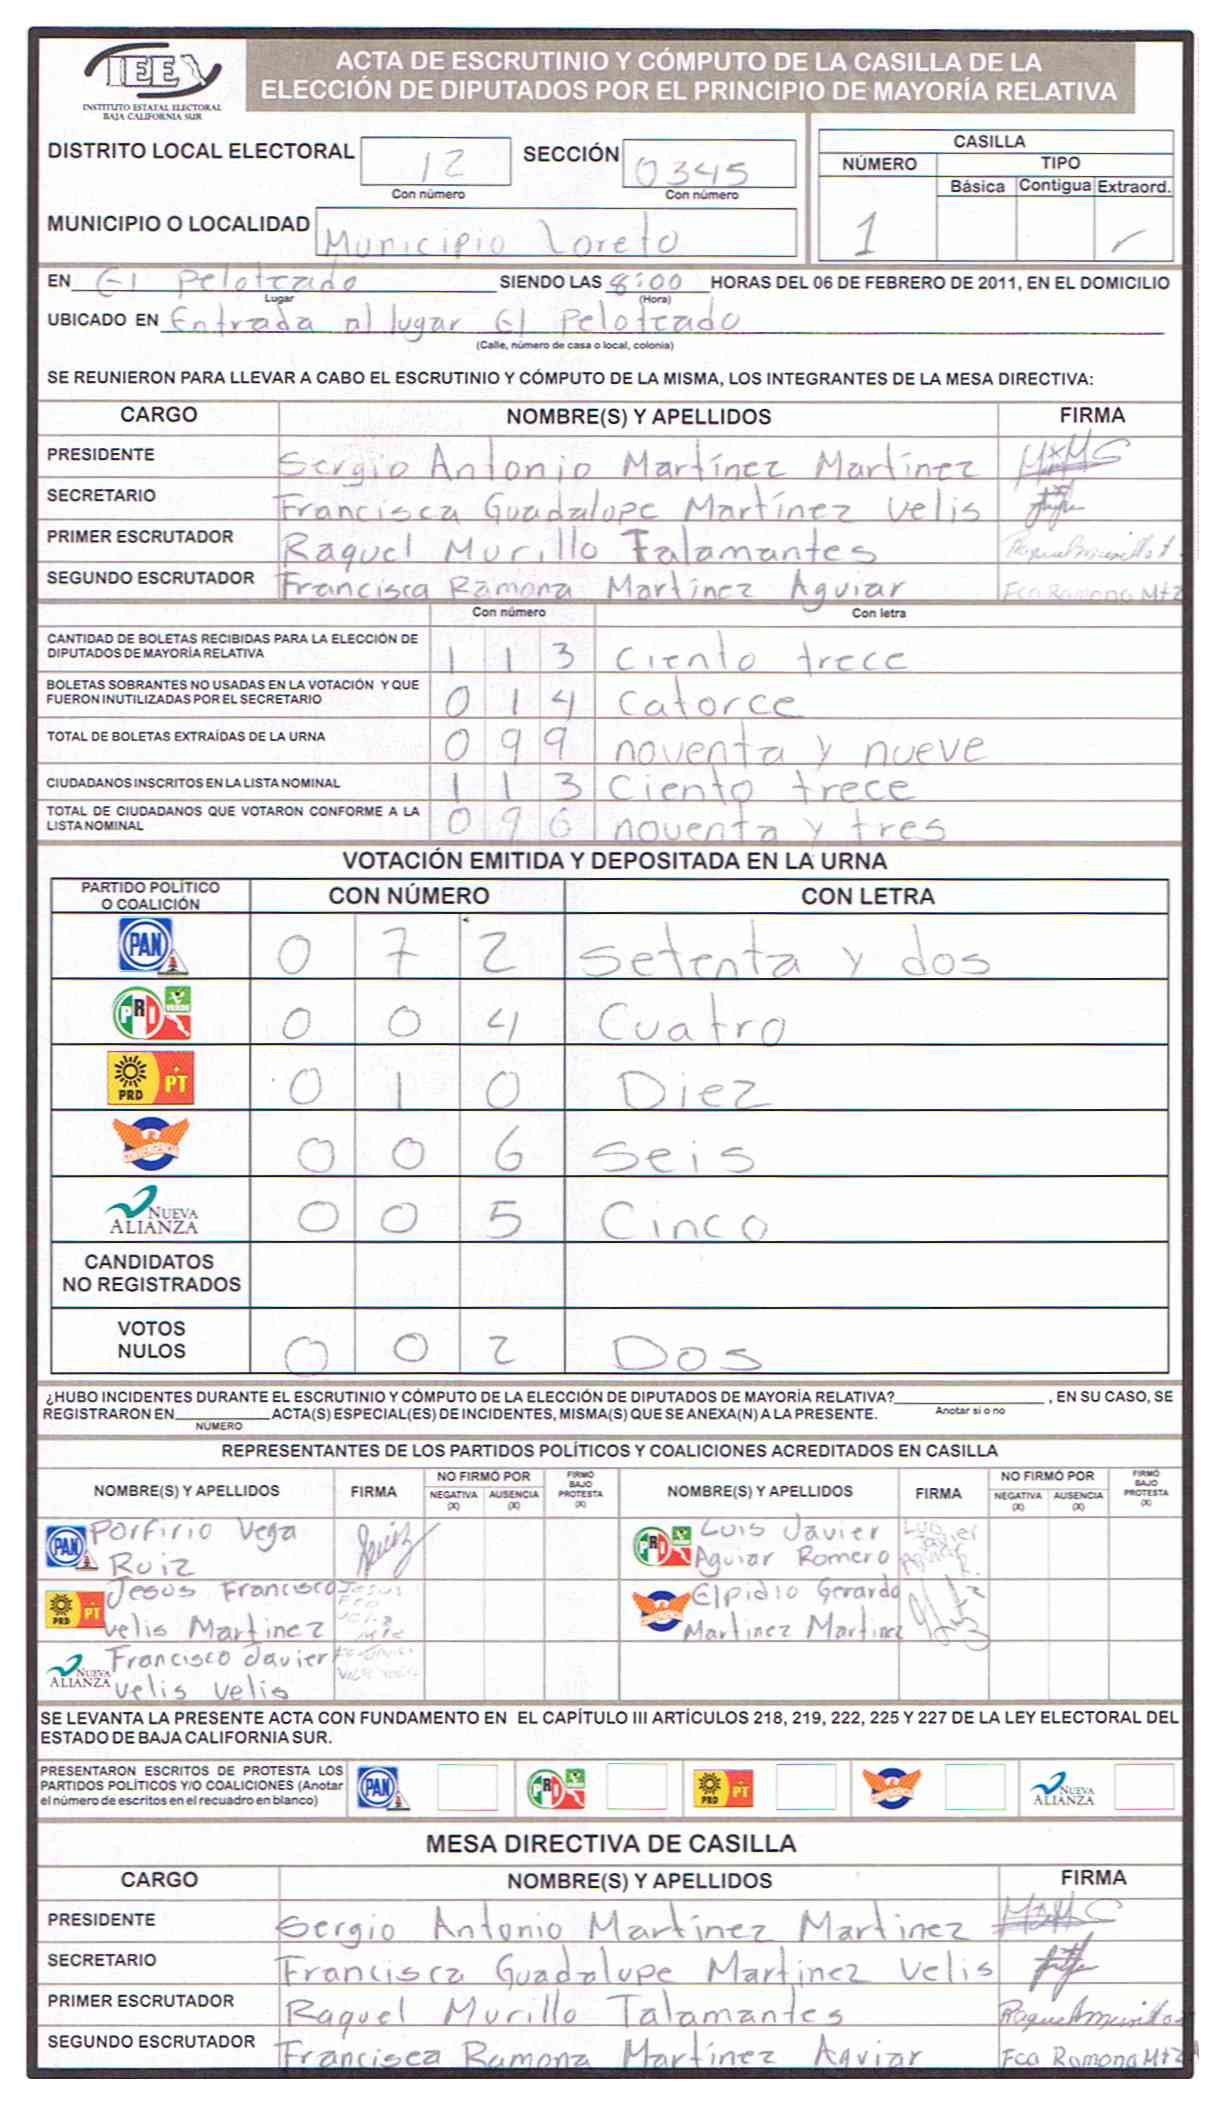 IEE
INSTITUTO ESTATAL ELECTORAL
BAJA CALIFORNIA SUR
ACTA DE ESCRUTINIO Y CÓMPUTO DE LA CASILLA DE LA
ELECCIÓN DE DIPUTADOS POR EL PRINCIPIO DE MAYORÍA RELATIVA
DISTRITO LOCAL ELECTORAL 12 SECCIÓN 0345
Con número Con número
MUNICIPIO O LOCALIDAD Municipio Loreto
CASILLA
NÚMERO TIPO
Básica Contigua Extraord.
1 ✓
EN El Peloteado SIENDO LAS 8:00 HORAS DEL 06 DE FEBRERO DE 2011, EN EL DOMICILIO
Lugar (Hora)
UBICADO EN Entrada al lugar El Peloteado
(Calle, número de casa o local, colonia)
SE REUNIERON PARA LLEVAR A CABO EL ESCRUTINIO Y CÓMPUTO DE LA MISMA, LOS INTEGRANTES DE LA MESA DIRECTIVA:
CARGO NOMBRE(S) Y APELLIDOS FIRMA
PRESIDENTE Sergio Antonio Martínez Martínez
SECRETARIO Francisca Guadalupe Martínez Velis
PRIMER ESCRUTADOR Raquel Murillo Talamantes Raquel Murillo T.
SEGUNDO ESCRUTADOR Francisca Ramona Martínez Aguiar Fca Ramona Mtz
Con número Con letra
CANTIDAD DE BOLETAS RECIBIDAS PARA LA ELECCIÓN DE
DIPUTADOS DE MAYORÍA RELATIVA 1 1 3 Ciento trece
BOLETAS SOBRANTES NO USADAS EN LA VOTACIÓN Y QUE
FUERON INUTILIZADAS POR EL SECRETARIO 0 1 4 Catorce
TOTAL DE BOLETAS EXTRAÍDAS DE LA URNA 0 9 9 noventa y nueve
CIUDADANOS INSCRITOS EN LA LISTA NOMINAL 1 1 3 Ciento trece
TOTAL DE CIUDADANOS QUE VOTARON CONFORME A LA
LISTA NOMINAL 0 9 6 noventa y tres
VOTACIÓN EMITIDA Y DEPOSITADA EN LA URNA
PARTIDO POLÍTICO
O COALICIÓN CON NÚMERO CON LETRA
PAN 0 7 2 Setenta y dos
PRI VERDE 0 0 4 Cuatro
PRD PT 0 1 0 Diez
CONVERGENCIA 0 0 6 Seis
NUEVA ALIANZA 0 0 5 Cinco
CANDIDATOS
NO REGISTRADOS
VOTOS
NULOS 0 0 2 Dos
¿HUBO INCIDENTES DURANTE EL ESCRUTINIO Y CÓMPUTO DE LA ELECCIÓN DE DIPUTADOS DE MAYORÍA RELATIVA? , EN SU CASO, SE
Anotar si o no
REGISTRARON EN ACTA(S) ESPECIAL(ES) DE INCIDENTES, MISMA(S) QUE SE ANEXA(N) A LA PRESENTE.
NÚMERO
REPRESENTANTES DE LOS PARTIDOS POLÍTICOS Y COALICIONES ACREDITADOS EN CASILLA
NOMBRE(S) Y APELLIDOS FIRMA NO FIRMÓ POR NEGATIVA (X) AUSENCIA (X) FIRMÓ BAJO PROTESTA (X) NOMBRE(S) Y APELLIDOS FIRMA NO FIRMÓ POR NEGATIVA (X) AUSENCIA (X) FIRMÓ BAJO PROTESTA (X)
PAN Porfirio Vega
Ruiz
PRI VERDE Luis Javier
Aguiar Romero
PRD PT Jesús Francisco
Velis Martinez
CONVERGENCIA Elpidio Gerardo
Martinez Martinez
NUEVA ALIANZA Francisco Javier
Velis Velis
SE LEVANTA LA PRESENTE ACTA CON FUNDAMENTO EN EL CAPÍTULO III ARTÍCULOS 218, 219, 222, 225 Y 227 DE LA LEY ELECTORAL DEL
ESTADO DE BAJA CALIFORNIA SUR.
PRESENTARON ESCRITOS DE PROTESTA LOS
PARTIDOS POLÍTICOS Y/O COALICIONES (Anotar
el número de escritos en el recuadro en blanco)
PAN PRI VERDE PRD PT CONVERGENCIA NUEVA ALIANZA
MESA DIRECTIVA DE CASILLA
CARGO NOMBRE(S) Y APELLIDOS FIRMA
PRESIDENTE Sergio Antonio Martínez Martinez
SECRETARIO Francisca Guadalupe Martinez Velis
PRIMER ESCRUTADOR Raquel Murillo Talamantes Raquel Murillo
SEGUNDO ESCRUTADOR Francisca Ramona Martínez Aguiar Fca Ramona Mtz A